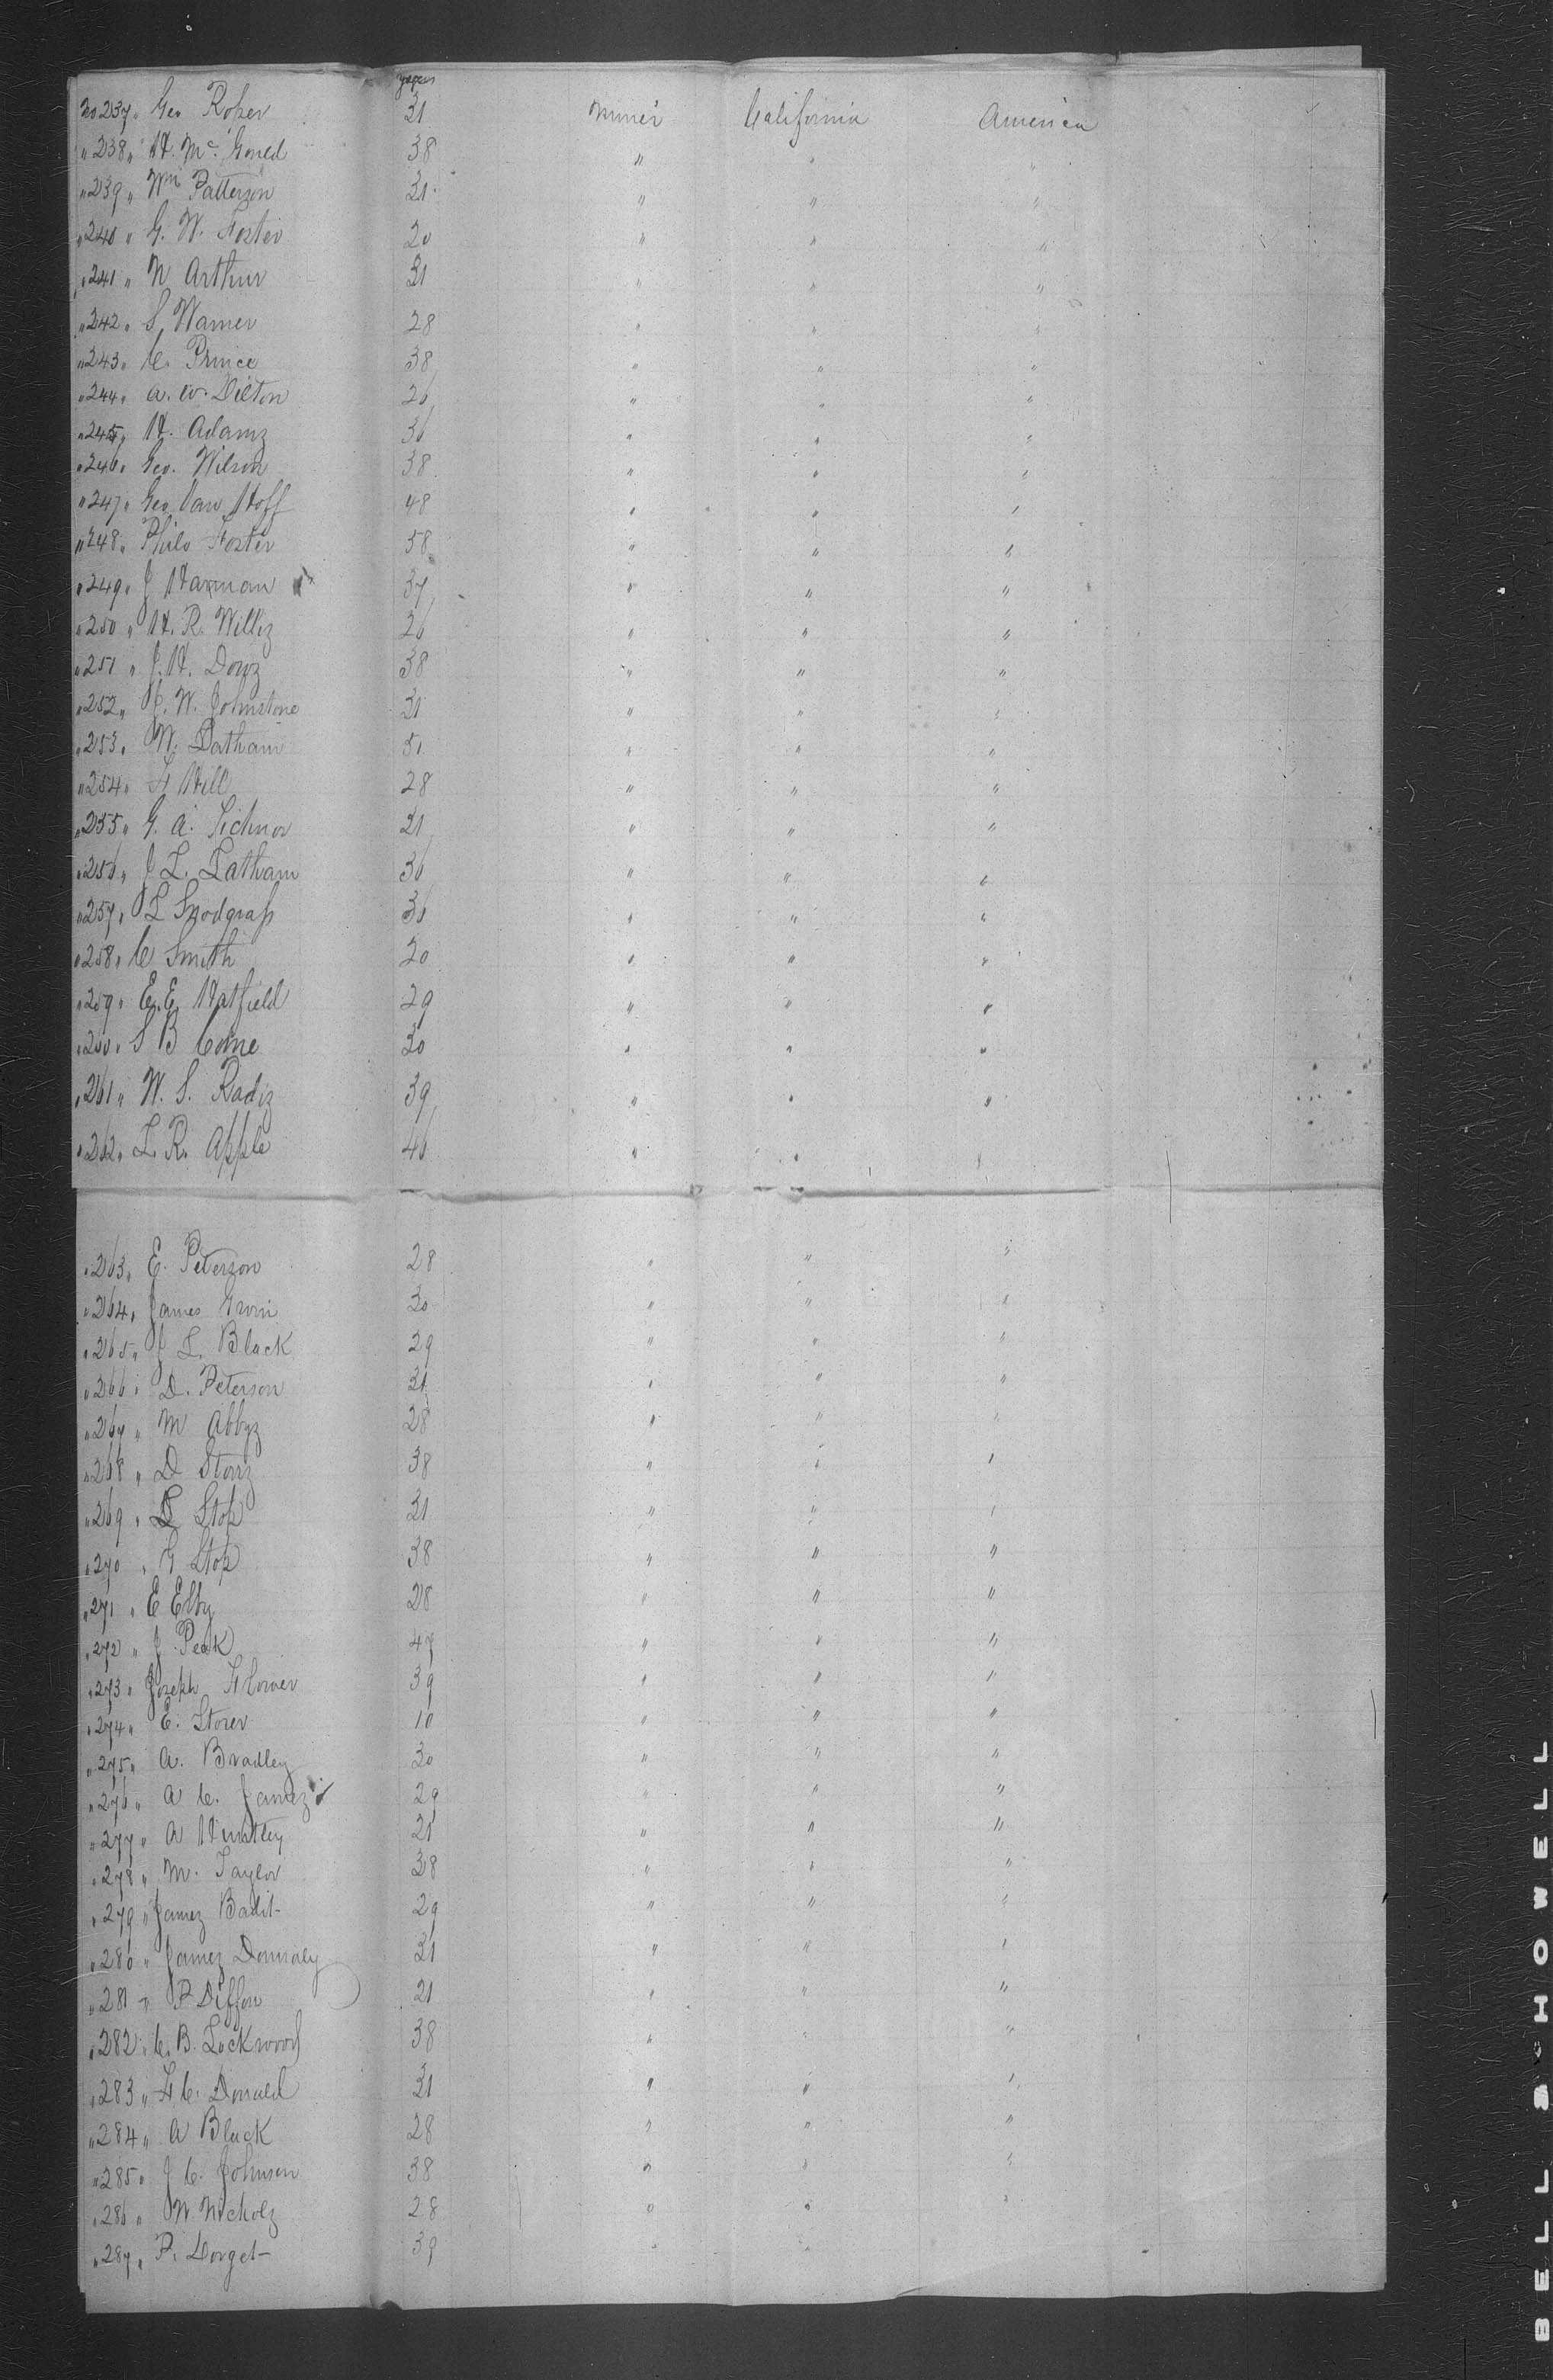 years
No 237 " Geo Roper 31 miner California America
" 238 " H. Mc. Gould 38 " " "
" 239 " Wm Patterson 31 " " "
" 240 " G. W. Foster 20 " " "
" 241 " N Arthur 31 " " "
" 242 " S Warner 28 " " "
" 243 " C. Prince 38 " " "
" 244 " A. W. Dilton 26 " " "
" 245 " H. Adams 36 " " "
" 246 " Geo. Wilson 38 " " "
" 247 " Geo Van Hoff 48 " " "
" 248 " Philo Foster 58 " " "
" 249 " J Harman 37 " " "
" 250 " H. R. Willis 26 " " "
" 251 " J. H. Dows 38 " " "
" 252 " J. W. Johnstone 31 " " "
" 253 " W. Latham 51 " " "
" 254 " F Hill 28 " " "
" 255 " G. A. Tichnor 21 " " "
" 256 " J L. Latham 36 " " "
" 257 " L Snodgrass 36 " " "
" 258 " C Smith 20 " " "
" 259 " E. E. Hatfield 29 " " "
" 260 " S B Come 30 " " "
" 261 " W. S. Radis 39 " " "
" 262 " L. R. Apple 46 " "
" 263 " E. Peterson 28 " " "
" 264 " James Irvin 30 " " "
" 265 " J L. Black 29 " " "
" 266 " D. Peterson 31 " " "
" 267 " M Abbys 28 " " "
" 268 " D Storrs 38 " " "
" 269 " L Stop 31 " " "
" 270 " G Stop 38 " " "
" 271 " E Elby 28 " " "
" 272 " J. Peak 47 " " "
" 273 " Joseph Flower 39 " " "
" 274 " E. Storer 10 " " "
" 275 " A. Bradley 30 " " "
" 276 " A C. James 29 " " "
" 277 " A Huntley 21 " " "
" 278 " M. Taylor 38 " " "
" 279 " James Badit 29 " " "
" 280 " James Donnaly 31 " " "
" 281 " P Diffon 21 " " "
" 282 " C. B. Lockwood 38 " " "
" 283 " F C. Donald 31 " " "
" 284 " A Black 28 " " "
" 285 " J C. Johnson 38 " " "
" 286 " W. Nichols 28 " " "
" 287 " P. Dorget 39 " "
BELL & HOWELL